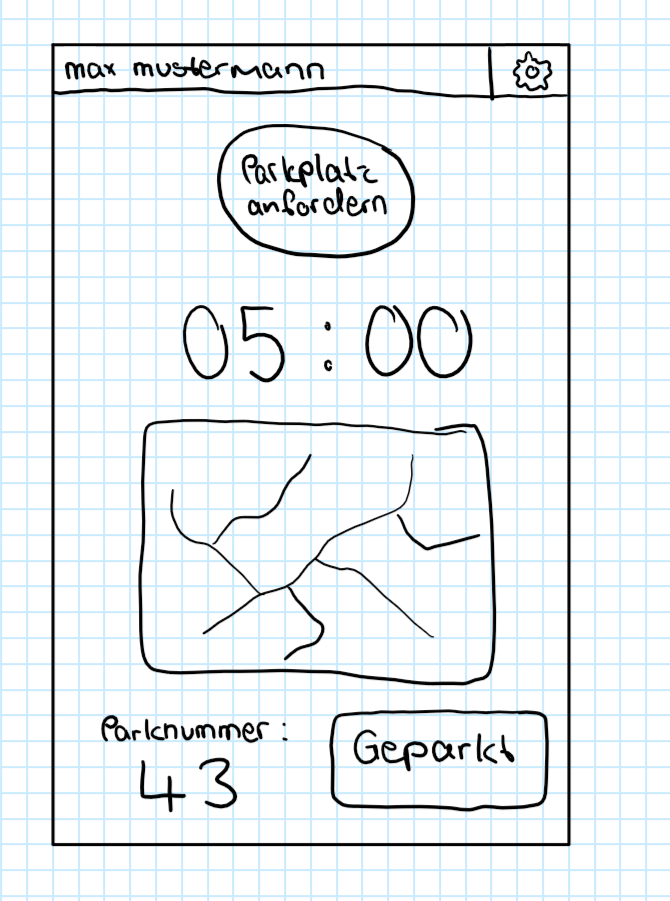 max mustermann
Parkplatz
anfordern
05:00
Parknummer:
43
Geparkt